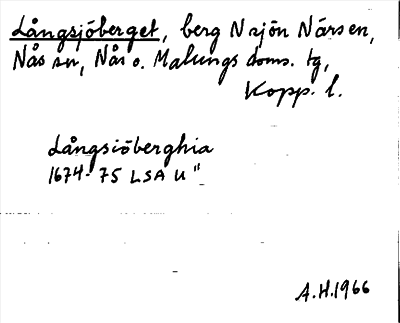 Långsjöberget, berg N sjön Närsen,
Nås sn, Nås o. Malungs doms. tg,
Kopp. l.
Långsiöberghia
1674-75 LSA U"
A.H. 1966